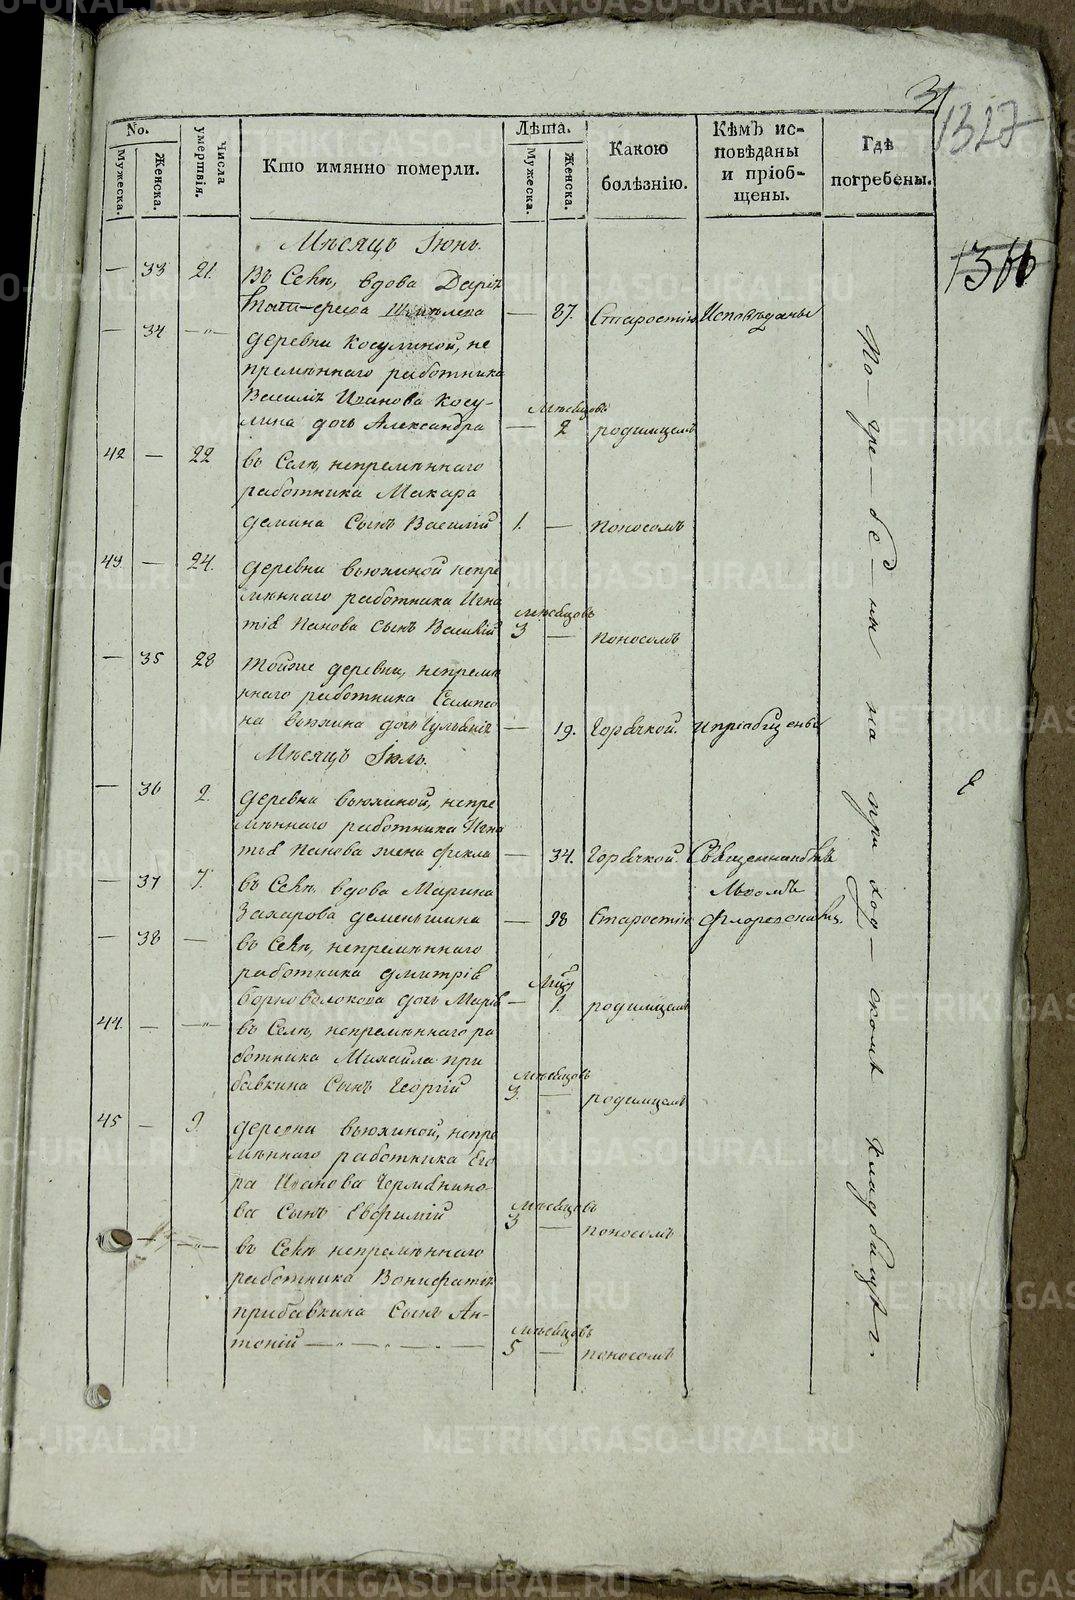 31
1327
1366
No.
Мужеска.
Женска.
Числа умертвія.
Кто имянно померли.
Лѣта.
Мужеска.
Женска.
Какою
болѣзнію.
Кѣмъ ис-
повѣданы
и пріоб-
щены.
Гдѣ
погребены.
Мѣсяцъ Іюнь.
— 33 21. Въ Селѣ, вдова Дарія
— 87. Старостію Исповѣданы
— 34 —„— деревни Косулиной, не
премѣннаго работника
Василія Иванова Косу-
лина дочь Александра — Мѣсяцовъ 2 родимцемъ
42 — 22 въ Селѣ, непремѣннаго
работника Макара
Демина Сынъ Василій 1. — поносомъ
43. — 24. деревни Вьюхиной непре
мѣннаго работника Игна
тія Панова сынъ Василій мѣсяцовъ 3 — поносомъ
— 35 28 тойже деревни, непремѣ
ннаго работника Сампсо
на Вьюхина дочь — 19. Горячкой. И пріобщены
Мѣсяцъ Іюль.
— 36 2. деревни Вьюхиной, непре
мѣннаго работника Игна
тія Панова жена Фекла — 34. Горячкой. Священникомъ
— 37 7. въ Селѣ вдова Марина Львомъ
Захарова Деменьшина — 98 Старостію
— 38 — въ Селѣ, непремѣннаго
работника Дмитрія
Борноволокова дочь Марія — 1. родимцемъ
44. — —„— въ Селѣ, непремѣннаго ра
ботника Михайла При
бавкина Сынъ Георгій мѣсяцовъ 3. — родимцемъ
45 — 9. деревни Вьюхиной, непре
мѣннаго работника Его
ра Иванова
ва Сынъ Евфимій мѣсяцовъ 3 — поносомъ
— —„— въ Селѣ непремѣннаго
работника Вонифатія
Прибавкина Сынъ Ан-
тоній — мѣсяцовъ 5 — поносомъ
По-гре-бе-ны на приход-скомъ кладбищѣ.
METRIKI.GASO-URAL.RU